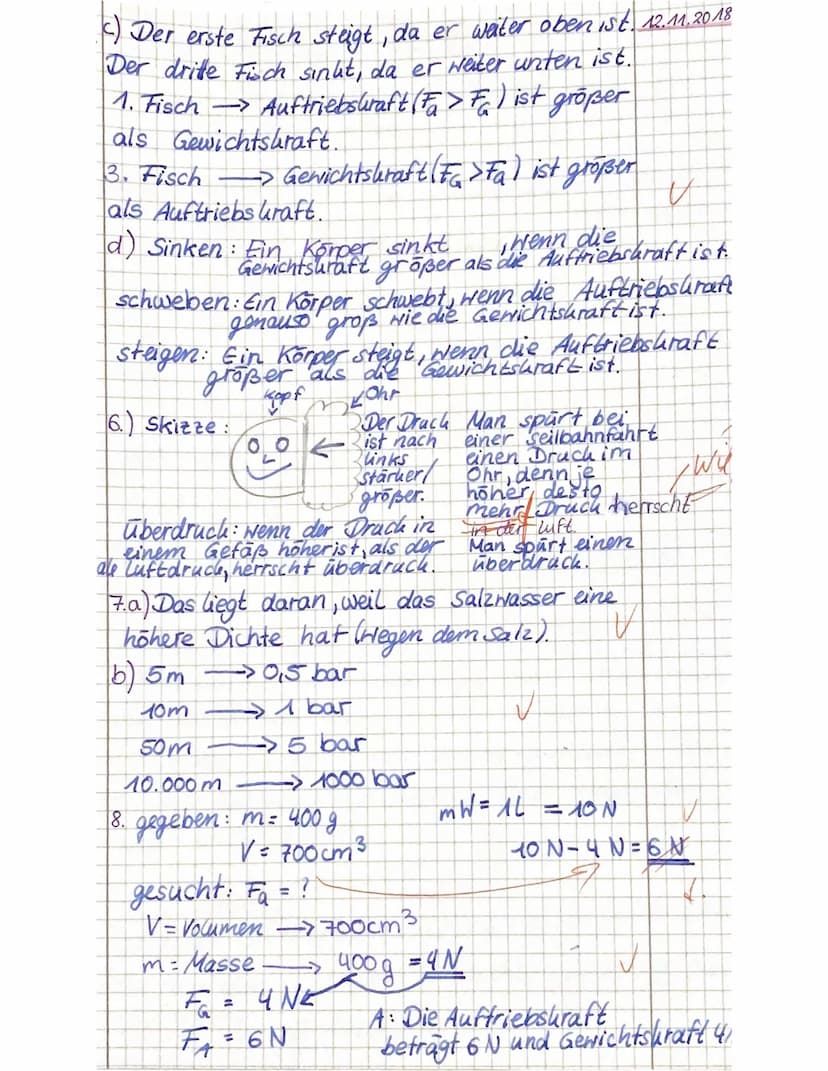 c) Der erste Fisch steigt, da er weiter oben ist. 12.11.2018
Der dritte Fisch sinkt, da er weiter unten ist.
1. Fisch → Auftriebskraft (Fa > FG) ist größer
als Gewichtskraft.
3. Fisch → Gewichtskraft (FG > Fa) ist größer
als Auftriebskraft.
d) Sinken: Ein Körper sinkt, wenn die
Gewichtskraft größer als die Auftriebskraft ist.
schweben: Ein Körper schwebt, wenn die Auftriebskraft
genauso groß wie die Gewichtskraft ist.
steigen: Ein Körper steigt, wenn die Auftriebskraft
größer als die Gewichtskraft ist.
Kopf
Ohr
6.) Skizze:
Der Druck
ist nach
links
stärker/
größer.
Man spürt bei
einer Seilbahnfahrt
einen Druck im
Ohr, denn je
höher, desto
mehr Druck herrscht
in der Luft
Man spürt einen
überdruck.
überdruck: wenn der Druck in
einem Gefäß höher ist, als der
als Luftdruck, herrscht überdruck.
7.a) Das liegt daran, weil das Salzwasser eine
höhere Dichte hat (wegen dem Salz).
b) 5m → 0,5 bar
10m → 1 bar
50m → 5 bar
10.000m → 1000 bar
8. gegeben: m = 400g
mW = 1L = 10 N
V = 700cm³
10 N - 4 N = 6 N
gesucht: Fa = ?
V = Volumen → 700cm³
m = Masse → 400g = 4 N
FG = 4 N
FA = 6 N
A: Die Auftriebskraft
beträgt 6 N und Gewichtskraft 4